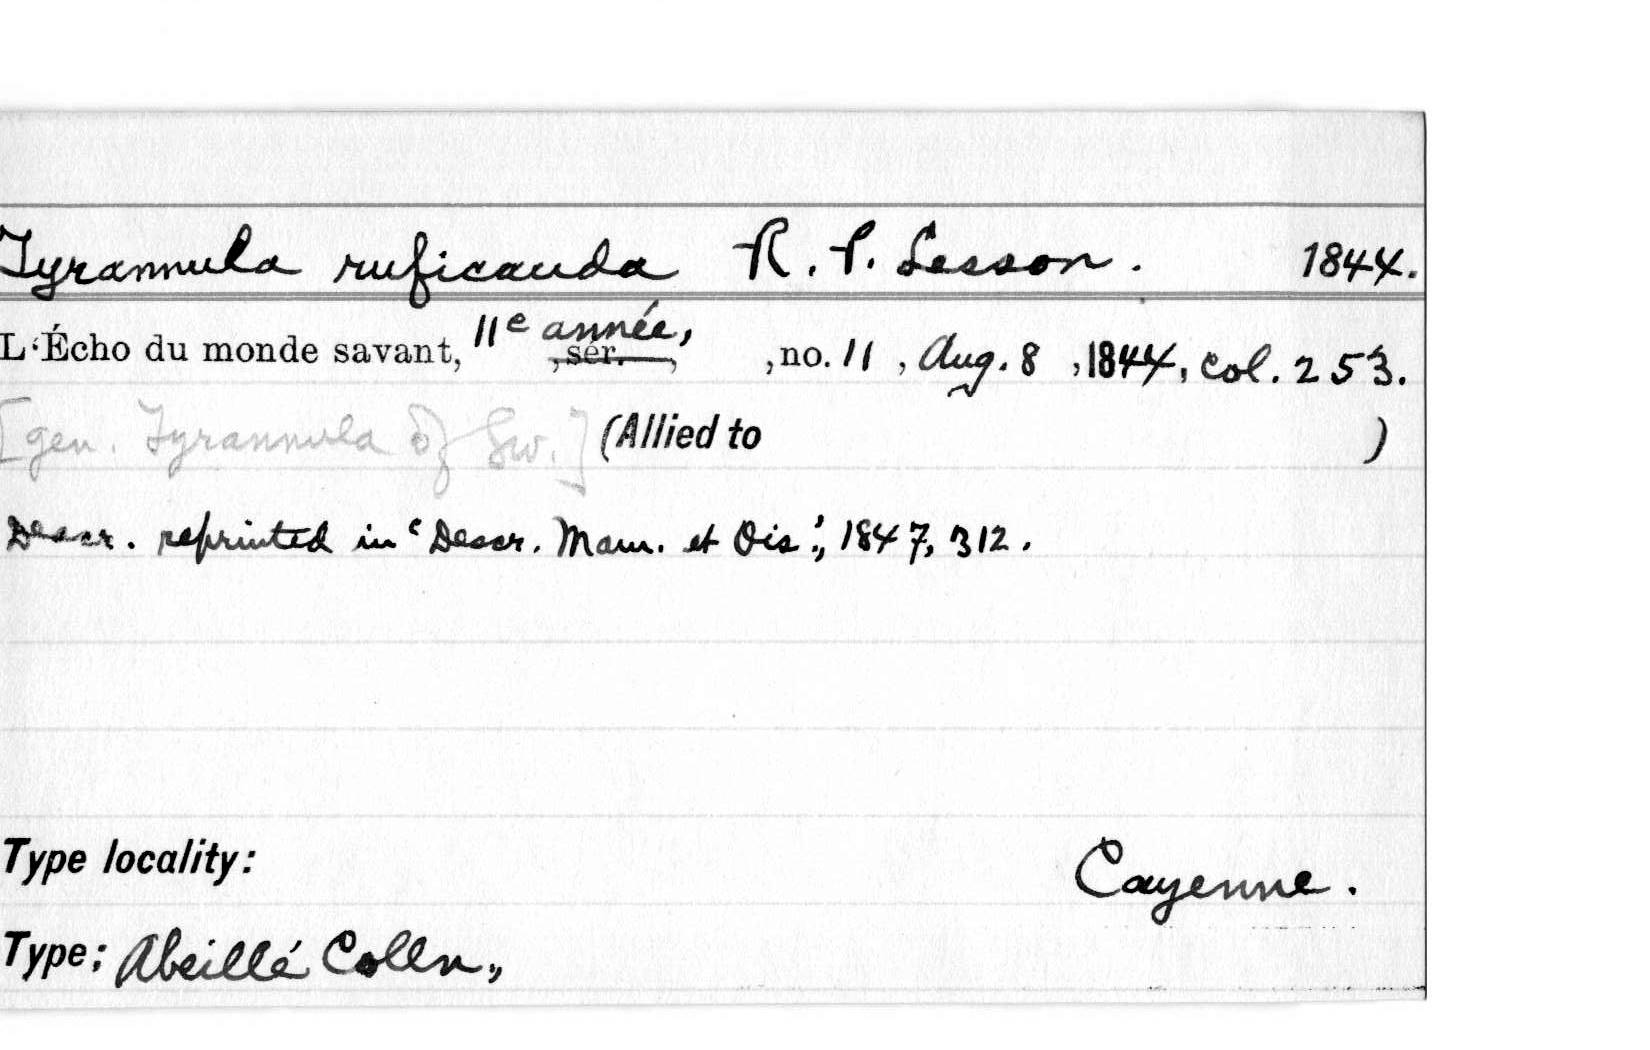 Tyrannula ruficauda R. P. Lesson. 1844.
L'Écho du monde savant, 11e année, , sér. , , no. 11 , Aug. 8 , 1844, col. 253.
[gen. Tyrannula of Sw.] (Allied to )
Descr. reprinted in 'Descr. Mam. et Ois.', 1847, 312.
Type locality: Cayenne.
Type; Abeillé Colln.,